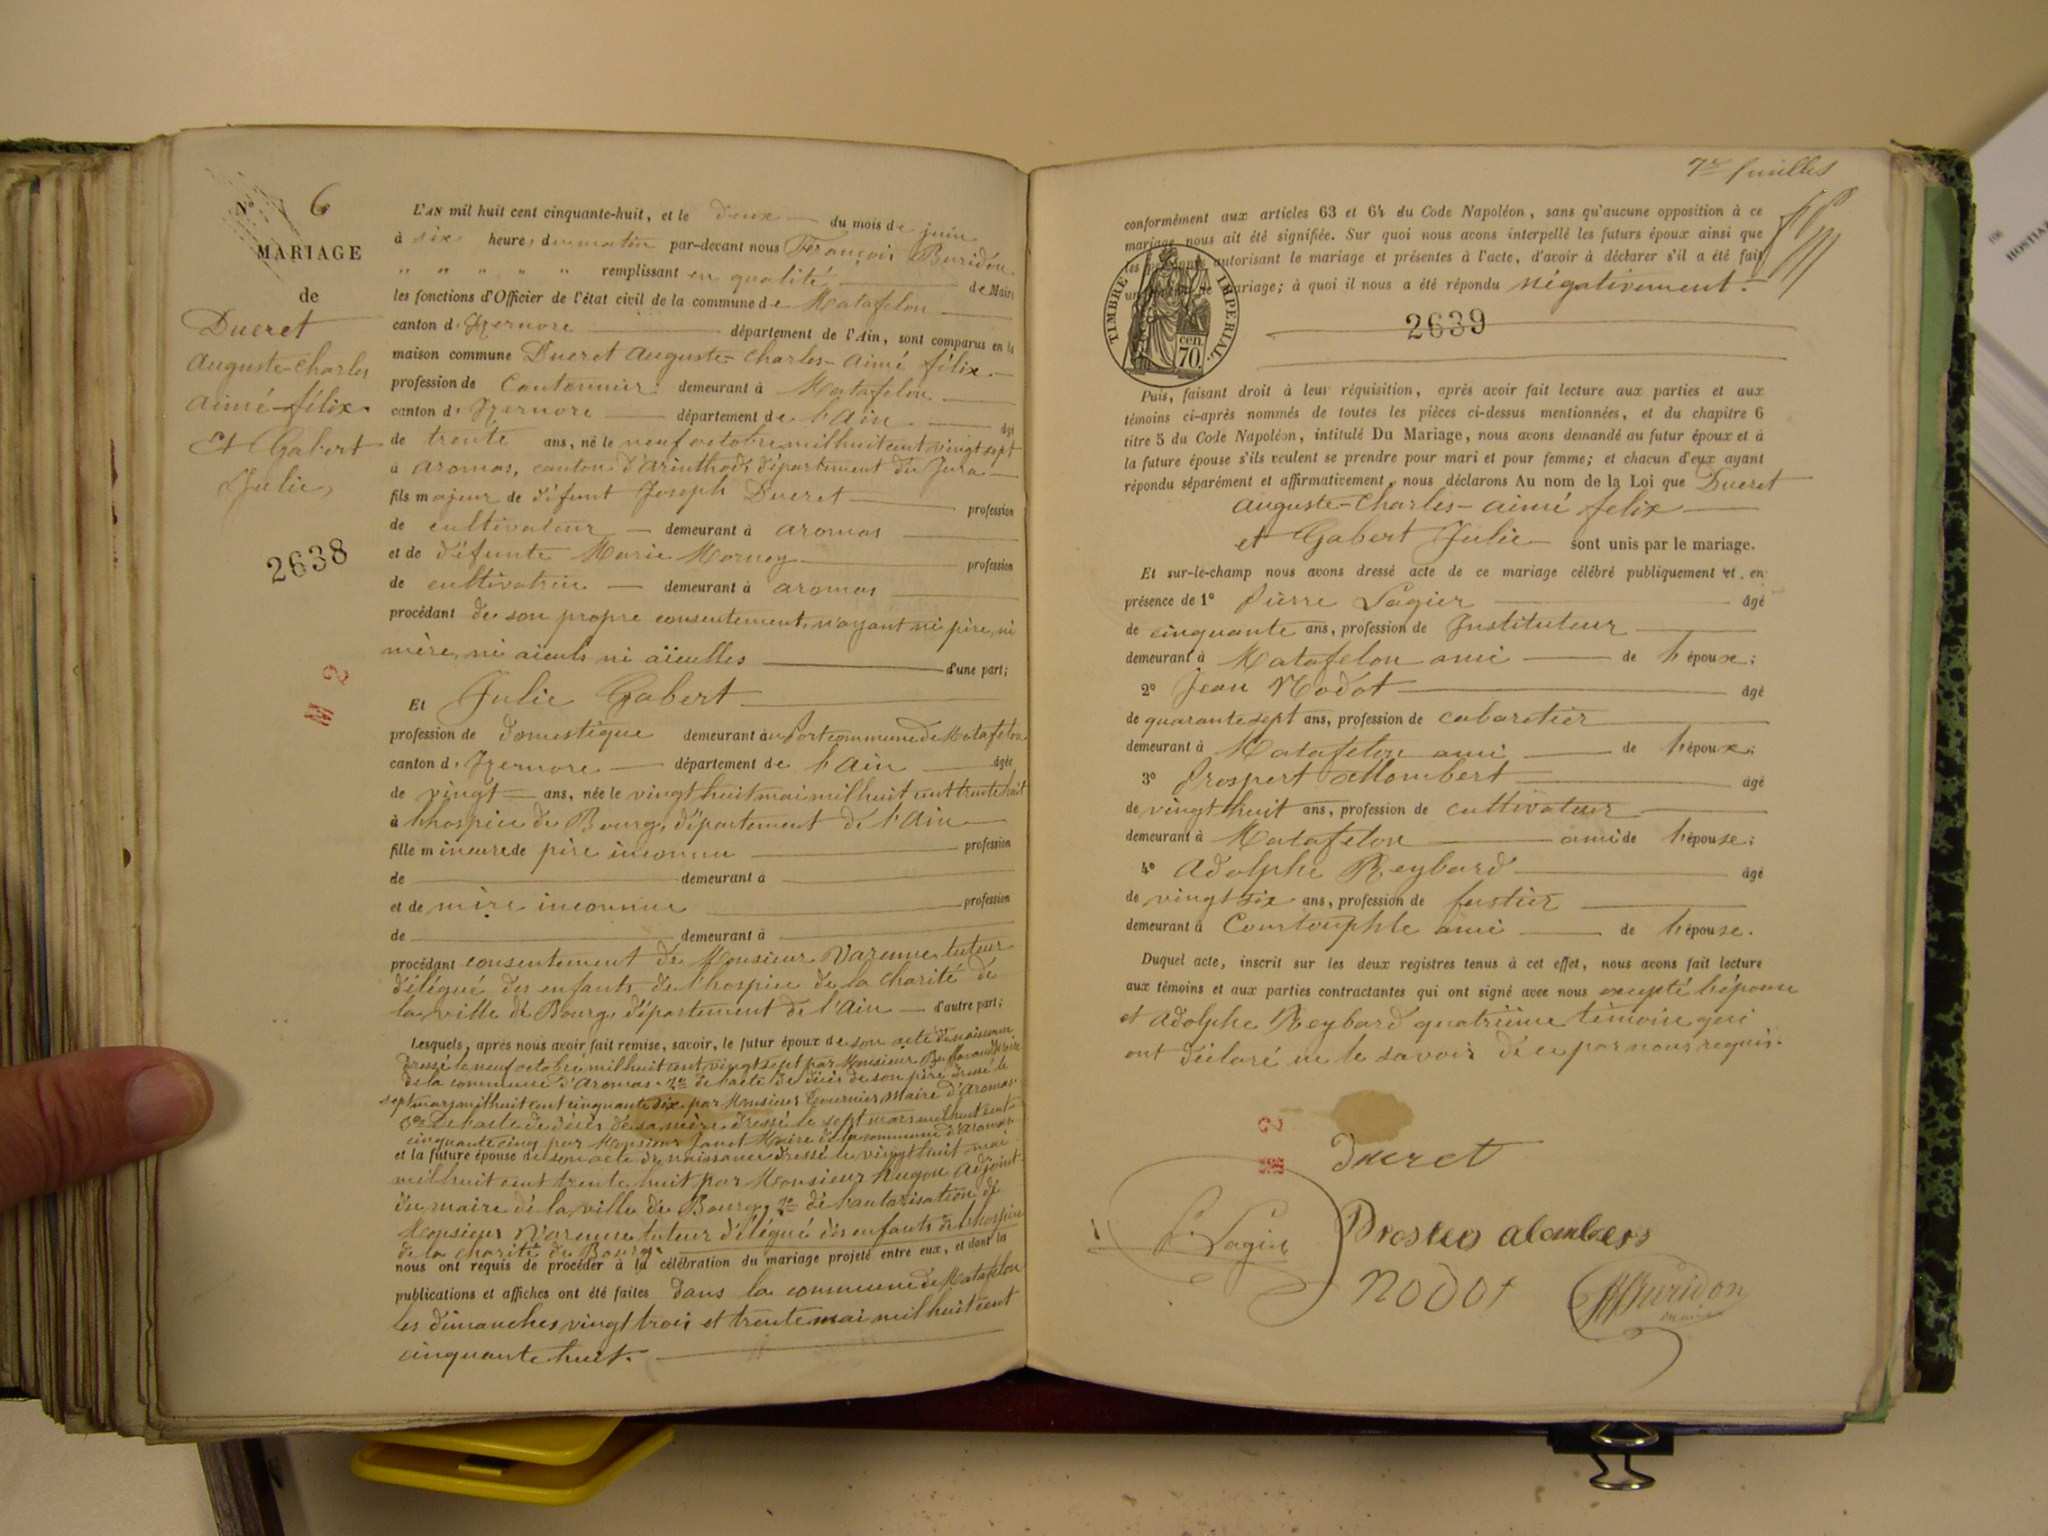 N° 6
MARIAGE
de
Ducret
auguste-charles
aimé-félix.
Et Gabert
Julie,
2638
M 2
L'AN mil huit cent cinquante-huit, et le deux du mois de juin
à six heures du matin par-devant nous François Buridon
" " " " " remplissant en qualité de Maire
les fonctions d'Officier de l'état civil de la commune de Matafelon
canton d'Izernore département de l'Ain, sont comparus en la
maison commune Ducret auguste-charles-aimé félix.
profession de Cantonnier demeurant à Matafelon
canton d'Izernore département de l'Ain. âgé
de trente ans, né le neuf octobre mil huit cent vingt sept
à aromas, canton d'arinthod, département du Jura
fils majeur de défunt Joseph Ducret profession
de cultivateur demeurant à aromas
et de défunte Marie Mornay profession
de cultivatrice demeurant à aromas
procédant de son propre consentement, n'ayant ni père, ni
mère, ni aïeuls ni aïeulles d'une part;
Et Julie Gabert
profession de domestique demeurant au Port commune de Matafelon
canton d'Izernore département de l'Ain âgée
de vingt ans, née le vingt huit mai mil huit cent trente huit
à l'hospice de Bourg, département de l'Ain
fille mineure de père inconnu profession
de demeurant à
et de mère inconnue profession
de demeurant à
procédant consentement de Monsieur Varenne tuteur
délégué des enfants de l'hospice de la charité de
la ville de Bourg, département de l'Ain d'autre part;
Lesquels, après nous avoir fait remise, savoir, le futur époux de son acte de naissance
dressé le neuf octobre mil huit cent vingt sept par Monsieur Maire
de la commune d'Aromas. 2° de l'acte de décès de son père dressé le
sept mars mil huit cent cinquante six par Monsieur Tournier maire d'Aromas.
3° De l'acte de décès de sa mère dressé le sept mars mil huit cent
cinquante cinq par Monsieur Janot Maire de la commune d'Aromas.
et la future épouse de son acte de naissance dressé le vingt huit mai
mil huit cent trente huit par Monsieur hugon adjoint
du maire de la ville de Bourg, 2° de l'autorisation de
Monsieur Varenne tuteur délégué des enfants de l'hospice
de la charité de Bourg.
nous ont requis de procéder à la célébration du mariage projeté entre eux, et dont la
publications et affiches ont été faites dans la commune de Matafelon
les dimanches vingt trois et trente mai mil huit cent
cinquante huit.
7me feuilles
conformément aux articles 63 et 64 du Code Napoléon, sans qu'aucune opposition à ce
mariage nous ait été signifiée. Sur quoi nous avons interpellé les futurs époux ainsi que
les personnes autorisant le mariage et présentes à l'acte, d'avoir à déclarer s'il a été fait
un contrat de mariage; à quoi il nous a été répondu négativement.
TIMBRE IMPERIAL.
70. cen.
2639
Puis, faisant droit à leur réquisition, après avoir fait lecture aux parties et aux
témoins ci-après nommés de toutes les pièces ci-dessus mentionnées, et du chapitre 6
titre 5 du Code Napoléon, intitulé Du Mariage, nous avons demandé au futur époux et à
la future épouse s'ils veulent se prendre pour mari et pour femme; et chacun d'eux ayant
répondu séparément et affirmativement, nous déclarons Au nom de la Loi que Ducret
auguste-charles-aimé felix
et Gabert Julie sont unis par le mariage.
Et sur-le-champ nous avons dressé acte de ce mariage célébré publiquement et en
présence de 1° Pierre Lagier âgé
de cinquante ans, profession de Instituteur
demeurant à Matafelon ami de l'épouse;
2° Jean Nodot âgé
de quarante sept ans, profession de cabaretier
demeurant à Matafelon ami de l'épouse;
3° Prospert allombert âgé
de vingt huit ans, profession de cultivateur
demeurant à Matafelon ami de l'épouse;
4° Adolphe Reybard âgé
de vingt six ans, profession de fustier
demeurant à Courtouphle ami de l'épouse.
Duquel acte, inscrit sur les deux registres tenus à cet effet, nous avons fait lecture
aux témoins et aux parties contractantes qui ont signé avec nous excepté l'épouse
et Adolphe Reybard quatrième témoin qui
ont déclaré ne le savoir de ce par nous requis.
M 2
Ducret
P. Lagier
nodot
Buridon
maire